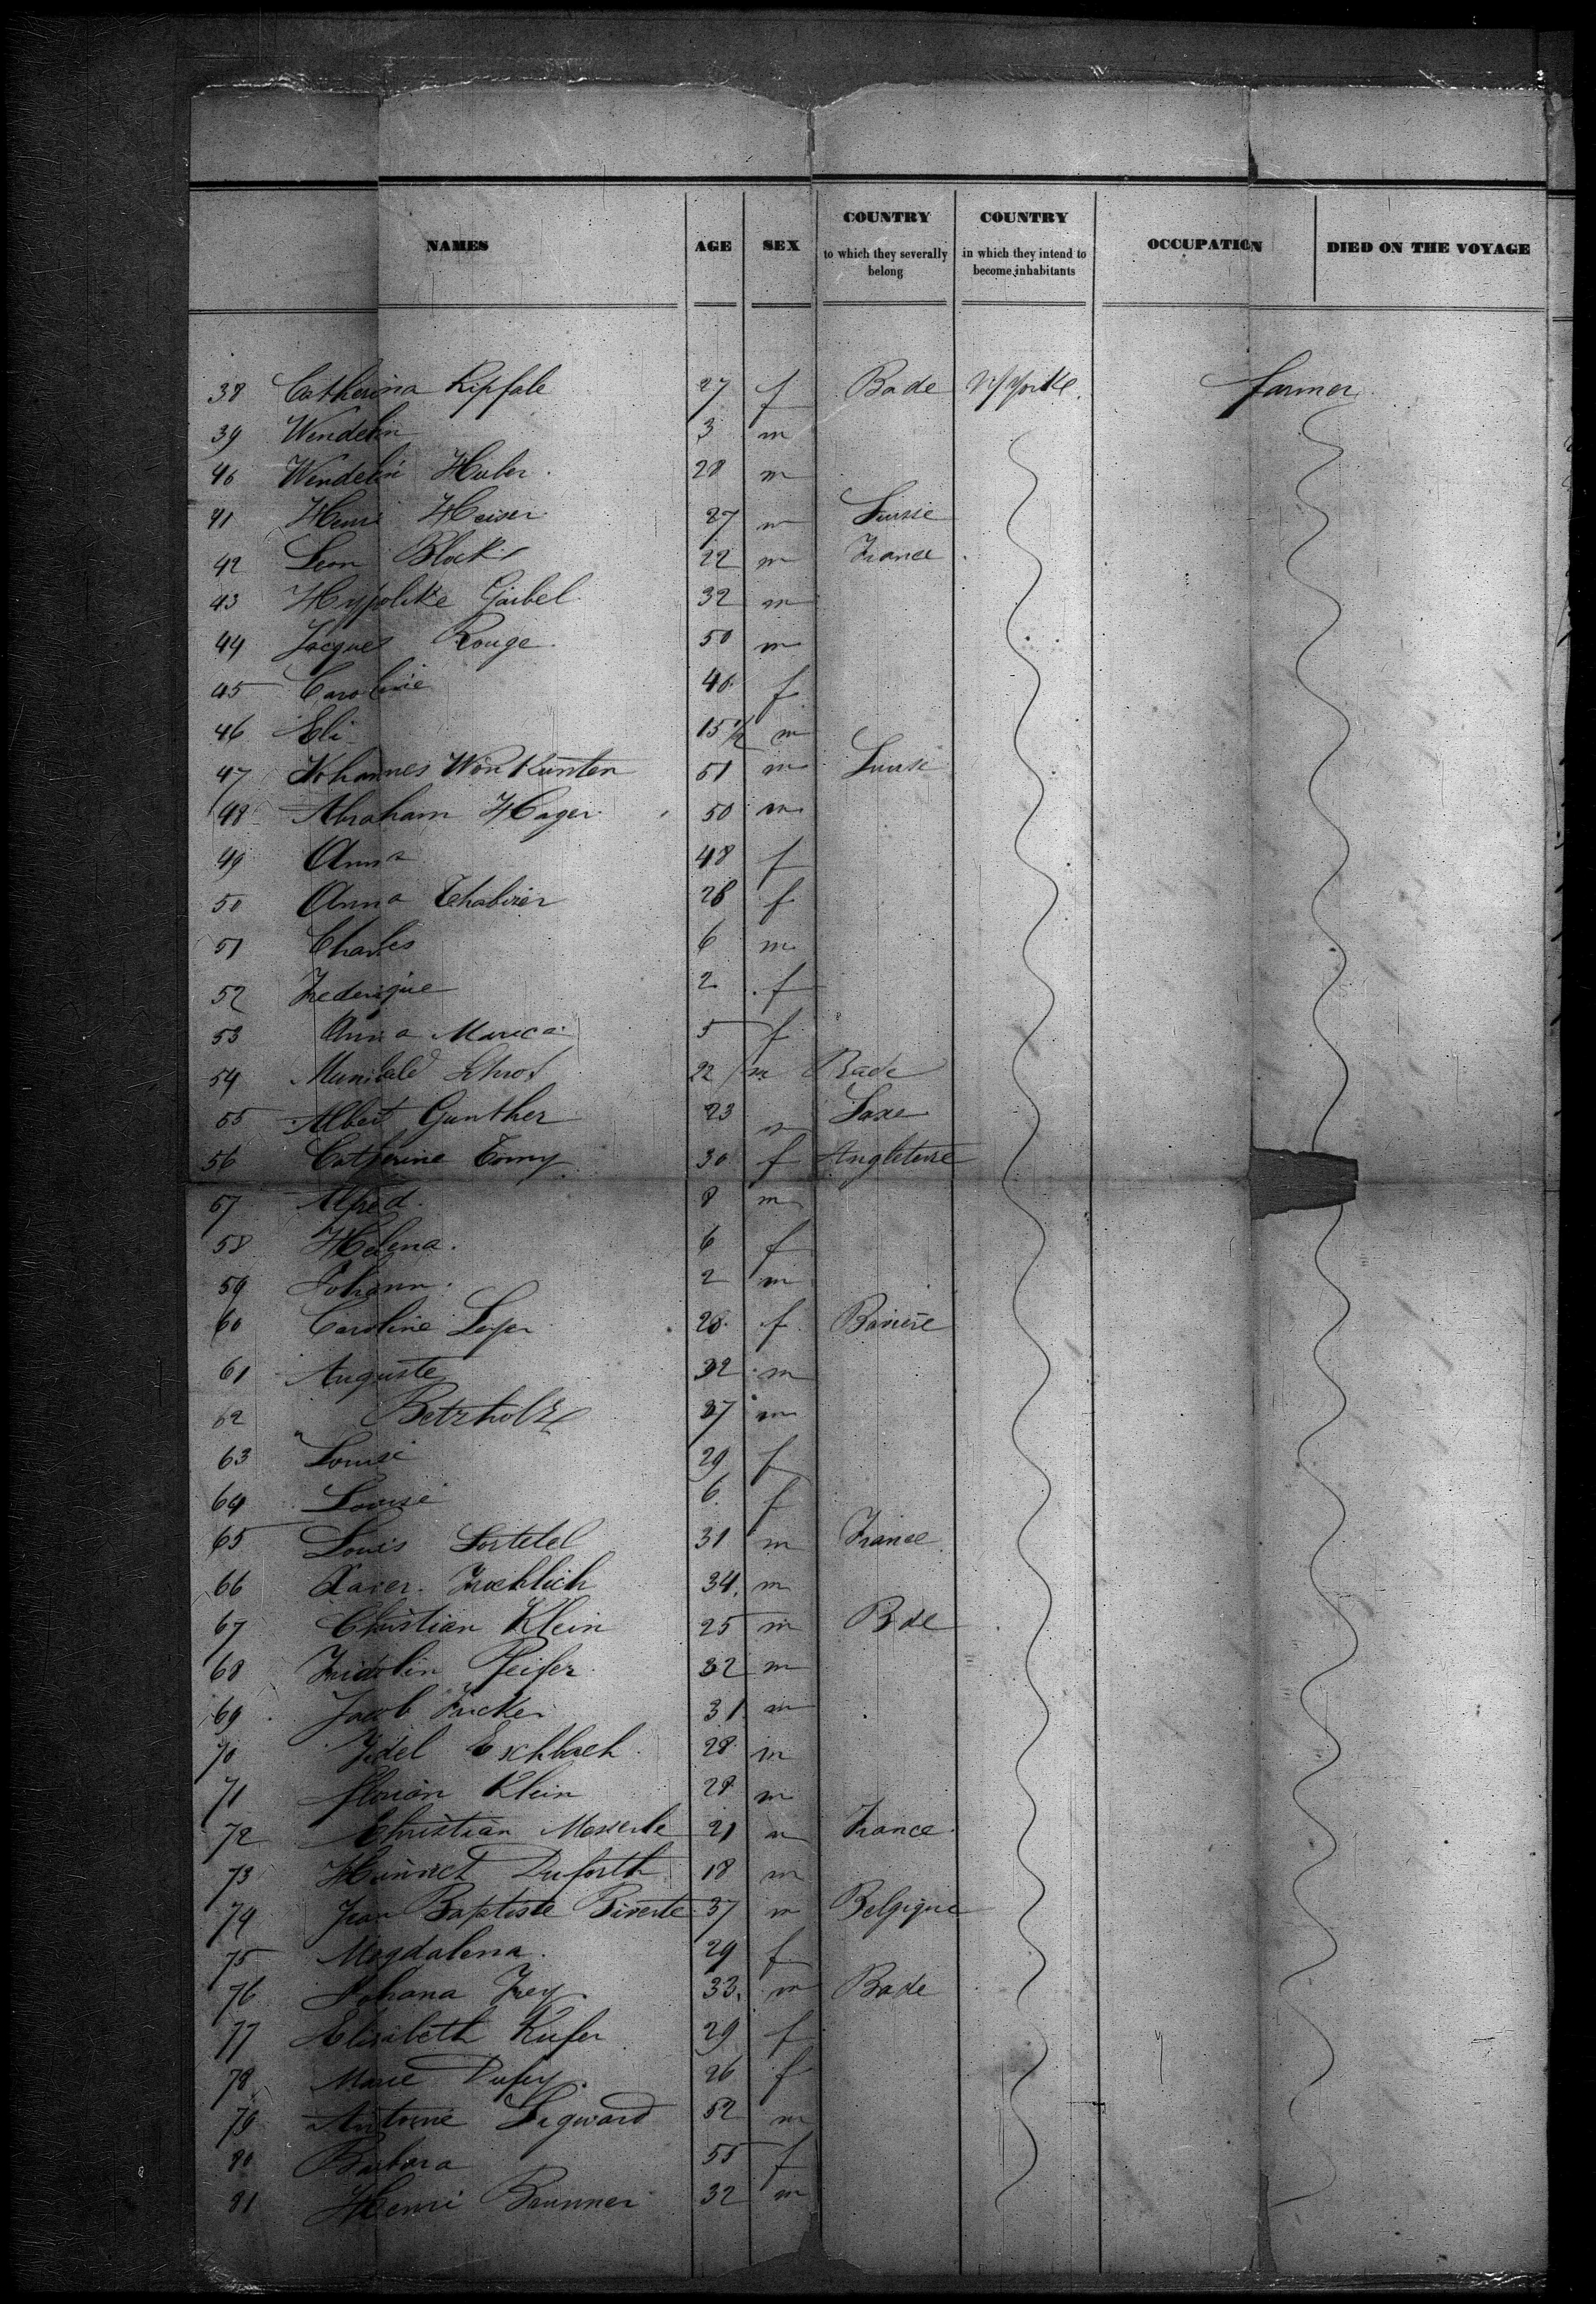 NAMES AGE SEX COUNTRY to which they severally belong COUNTRY in which they intend to become inhabitants OCCUPATION DIED ON THE VOYAGE
38 Catherina Ripfale 27 f Bade N/Yorke farmer
39 Wendelin 3 m
40 Wendelin Huber 28 m
41 Henri Heiser 27 m Suisse
42 Leon Block 22 m France
43 Hypolite Gaibel 32 m
44 Jacques Rouge 50 m
45 Caroline 40 f
46 Eli 15 1/2 m
47 Johannes Won Kunten 51 m Suisse
48 Abraham Hager 50 m
49 Anna 48 f
50 Anna 28 f
51 Charles 6 m
52 Frederique 2 f
53 Anna Maria 5 f
54 22 m Bade
55 Albert Gunther 23 m Saxe
56 Catherine Tomy 30 f Angleterre
57 Alfred 8 m
58 Helena 6 f
59 Johann 2 m
60 Caroline 28 f Baviere
61 Auguste 32 m
62 " Betzholz 37 m
63 Louise 29 f
64 Louise 6 f
65 Louis 31 m France
66 Xavier Froehlich 34 m
67 Christian Klein 25 m Bde
68 Fridolin Pfeifer 32 m
69 Jacob 31 m
70 Fidel Eschbach 28 m
71 florian Klein 28 m
72 Christian Messerle 21 m France
73 Duforth 18 m
74 Jean Baptiste 37 m Belgique
75 Magdalena 29 f
76 Johana Frey 33 m Bade
77 Elisabeth Kiefer 29 f
78 Marie Dufey 26 f
79 Antoine Sigward 52 m
80 Barbara 55 f
81 Henri Brunner 32 m